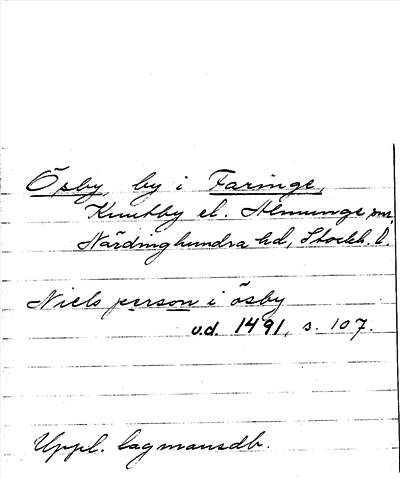 Ösby, by i Faringe,
Knutby el. Almunge snr,
Närdinghundra hd, Stockh. l.
Niels person i ösby
u.d. 1491, s. 107.
Uppl. lagmansdb.